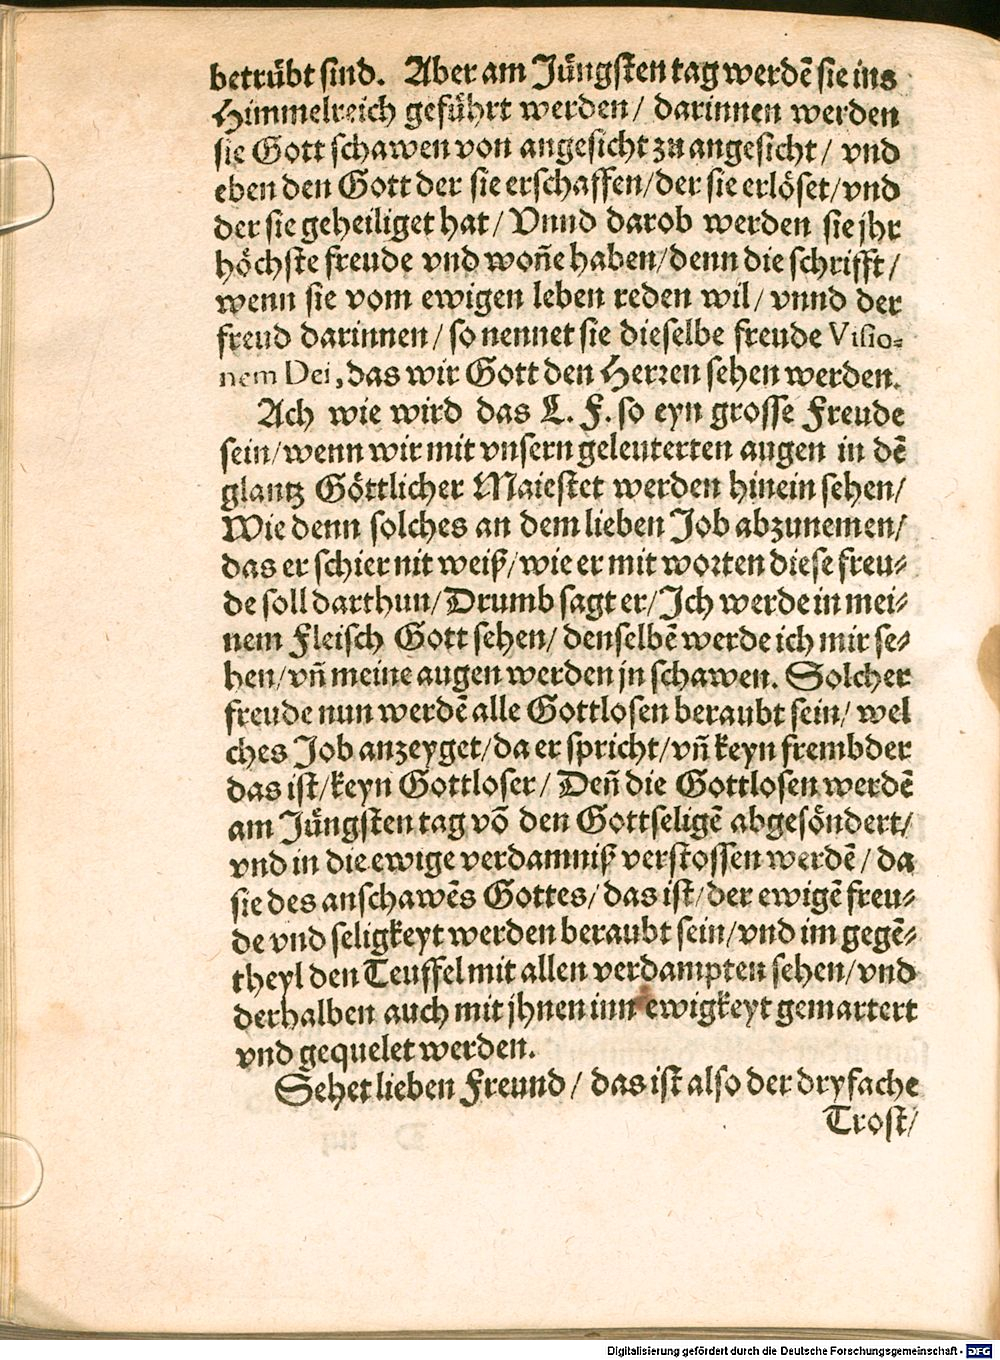 betrübt sind. Aber am Jüngsten tag werdē sie ins
Himmelreich geführt werden/ darinnen werden
sie Gott schawen von angesicht zu angesicht/ vnd
eben den Gott der sie erschaffen/der sie erlöset/vnd
der sie geheiliget hat/ Vnnd darob werden sie jhr
höchste freude vnd woñe haben/denn die schrifft/
wenn sie vom ewigen leben reden wil/ vnnd der
freud darinnen/ so nennet sie dieselbe freude Visio-
nem Dei, das wir Gott den Herren sehen werden.
Ach wie wird das L. F. so eyn grosse Freude
sein/wenn wir mit vnsern geleuterten augen in dē
glantz Göttlicher Maiestet werden hinein sehen/
Wie denn solches an dem lieben Job abzunemen/
das er schier nit weiß/wie er mit worten diese freu-
de soll darthun/ Drumb sagt er/ Ich werde in mei-
nem Fleisch Gott sehen/ denselbē werde ich mir se-
hen/vñ meine augen werden jn schawen. Solcher
freude nun werdē alle Gottlosen beraubt sein/ wel
ches Job anzeyget/da er spricht/vñ keyn frembder
das ist/keyn Gottloser/ Deñ die Gottlosen werdē
am Jüngsten tag vō den Gottseligē abgesöndert/
vnd in die ewige verdamniß verstossen werdē/ da
sie des anschawēs Gottes/ das ist/ der ewigē freu-
de vnd seligkeyt werden beraubt sein/vnd im gegē-
theyl den Teuffel mit allen verdampten sehen/vnd
derhalben auch mit jhnen inn ewigkeyt gemartert
vnd gequelet werden.
Sehet lieben Freund/ das ist also der dryfache
Trost/
Digitalisierung gefördert durch die Deutsche Forschungsgemeinschaft - DFG